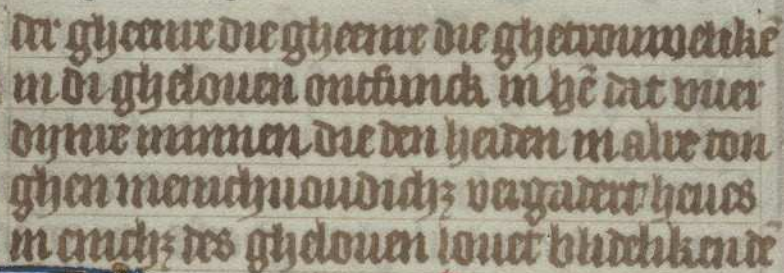 der gheenre die gheenre die ghetrouwelikē
in di ghelouen ontfunck in hē dat vuer
dijnre minnen die den heiden in alre ton
ghen menichuoudichꝫ vergadert heues
in enichꝫ des ghelouen louet blidelikende